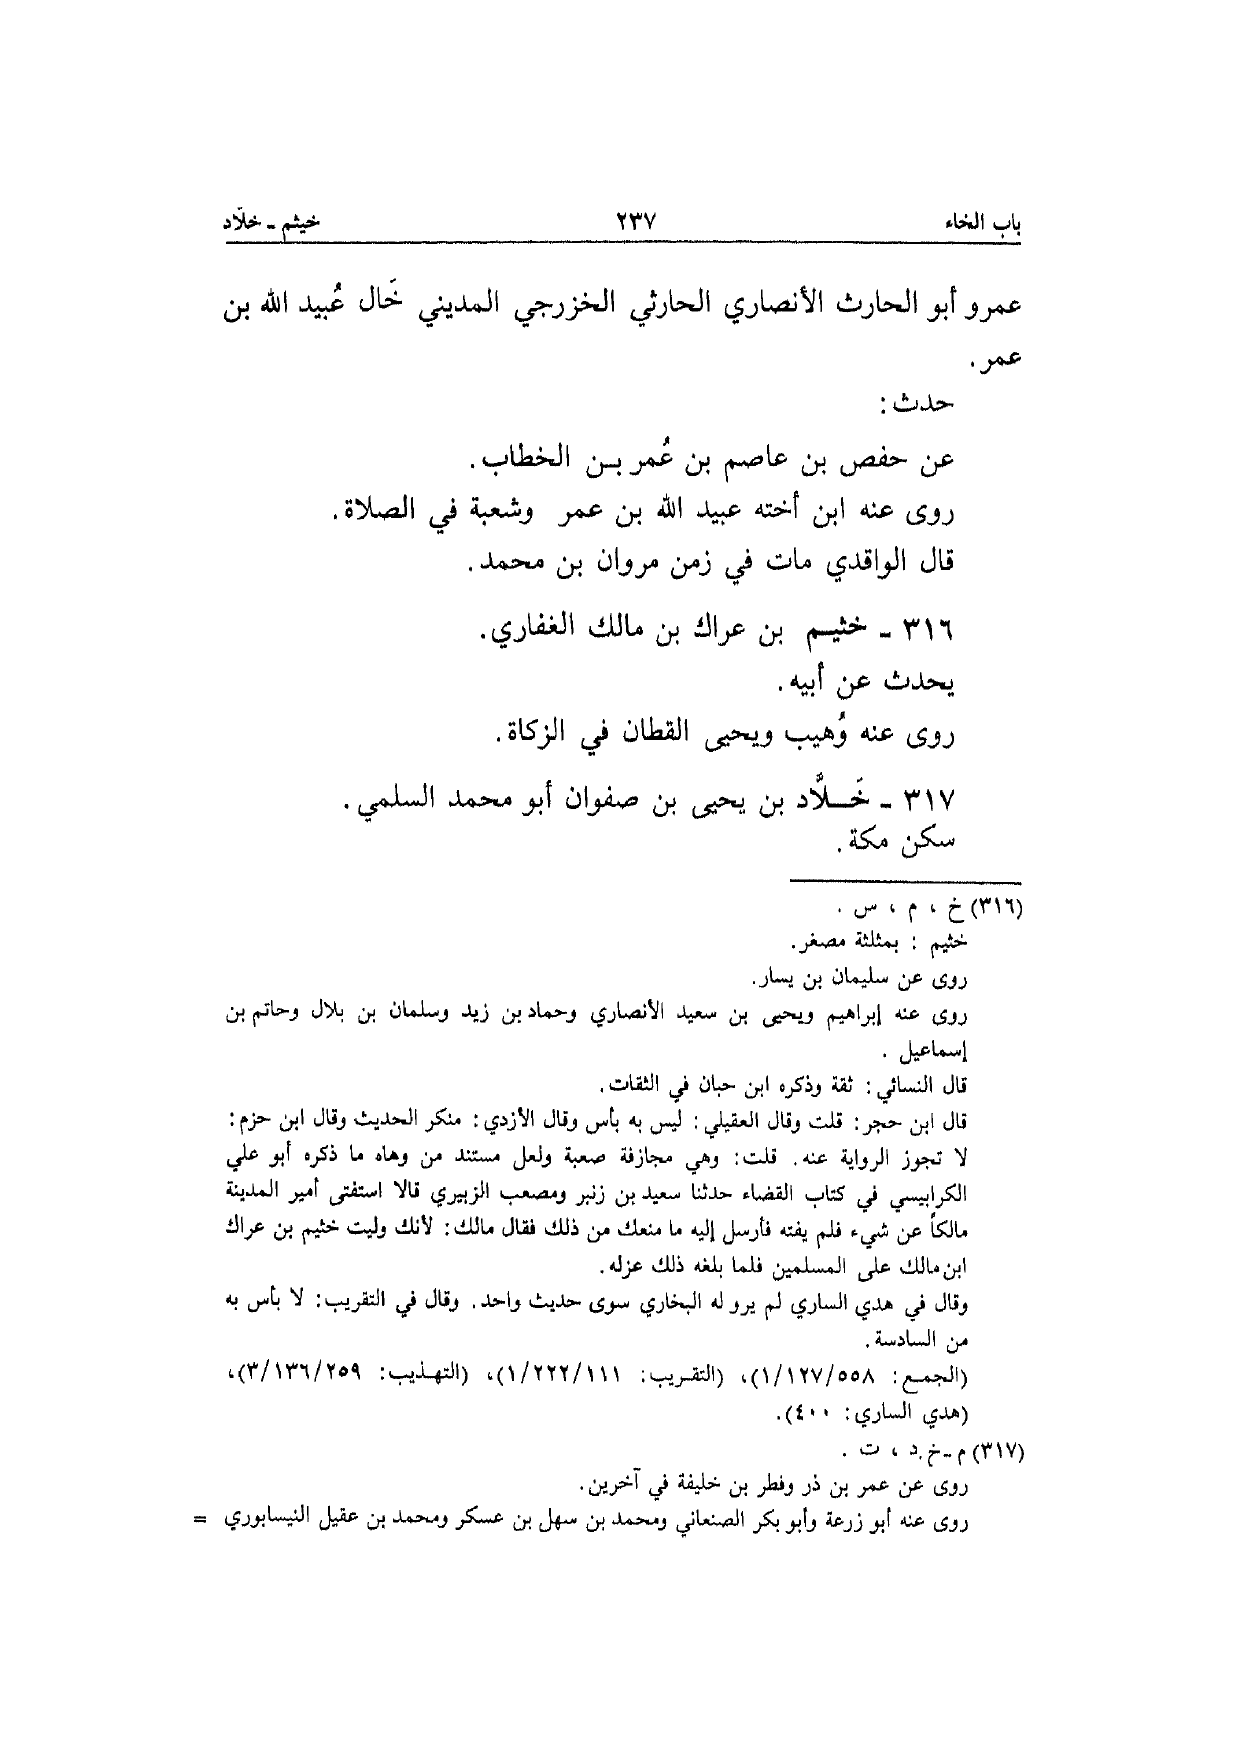 باب الخاء ٢٣٧ خيثم ـ خلّاد
عمرو أبو الحارث الأنصاري الحارثي الخزرجي المديني خَال عُبيد الله بن
عمر .
حدث :
عن حفص بن عاصم بن عُمر بن الخطاب .
روى عنه ابن أخته عبيد الله بن عمر وشعبة في الصلاة .
قال الواقدي مات في زمن مروان بن محمد .
٣١٦ ـ خثيم بن عراك بن مالك الغفاري .
يحدث عن أبيه .
روى عنه وُهيب ويحيى القطان في الزكاة .
٣١٧ ـ خَلَّاد بن يحيى بن صفوان أبو محمد السلمي .
سكن مكة .
(٣١٦) خ ، م ، س .
خثيم : بمثلثة مصغر .
روى عن سليمان بن يسار .
روى عنه إبراهيم ويحيى بن سعيد الأنصاري وحماد بن زيد وسلمان بن بلال وحاتم بن
إسماعيل .
قال النسائي : ثقة وذكره ابن حبان في الثقات .
قال ابن حجر : قلت وقال العقيلي : ليس به بأس وقال الأزدي : منكر الحديث وقال ابن حزم :
لا تجوز الرواية عنه . قلت : وهي مجازفة صعبة ولعل مستند من وهاه ما ذكره أبو علي
الكرابيسي في كتاب القضاء حدثنا سعيد بن زنبر ومصعب الزبيري قالا استفتى أمير المدينة
مالكاً عن شيء فلم يفته فأرسل إليه ما منعك من ذلك فقال مالك : لأنك وليت خثيم بن عراك
ابن مالك على المسلمين فلما بلغه ذلك عزله .
وقال في هدي الساري لم يرو له البخاري سوى حديث واحد . وقال في التقريب : لا بأس به
من السادسة .
(الجمع : ١/١٢٧/٥٥٨) ، (التقريب : ١/٢٢٢/١١١) ، (التهذيب : ٣/١٣٦/٢٥٩) ،
(هدي الساري : ٤٠٠) .
(٣١٧) م-خ . د ، ت .
روى عن عمر بن ذر وفطر بن خليفة في آخرين .
روى عنه أبو زرعة وأبو بكر الصنعاني ومحمد بن سهل بن عسكر ومحمد بن عقيل النيسابوري =